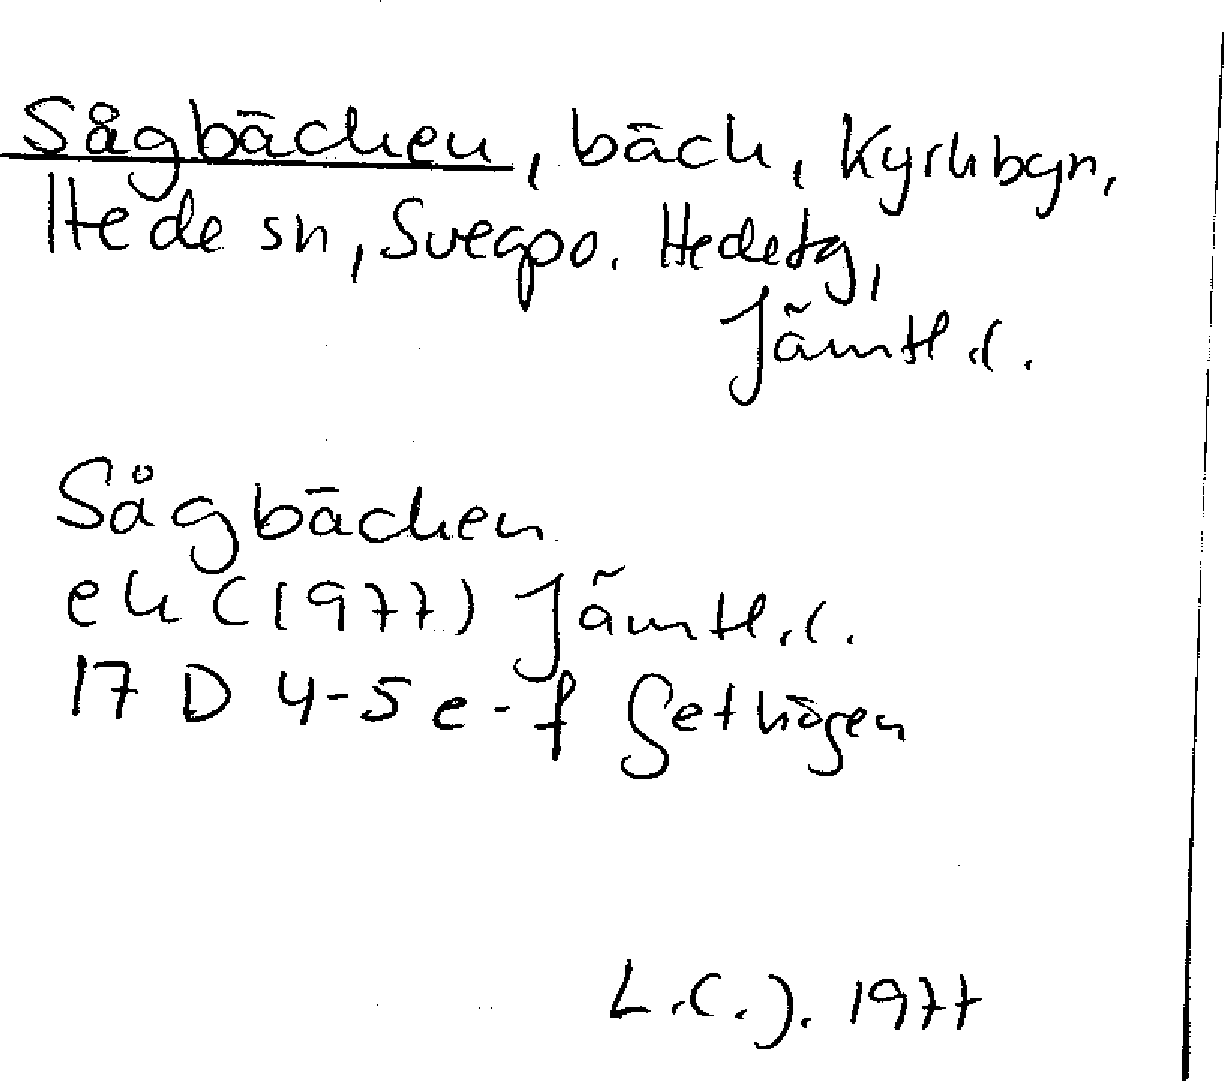 Sågbäcken, bäck, Kyrkbyn,
Hede sn, Svegpo. Hedetg,
Jämtl.l.
Sågbäcken
ek (1977) Jämtl.l.
17 D 4-5 e-f Gethögen
L.C.J. 1977